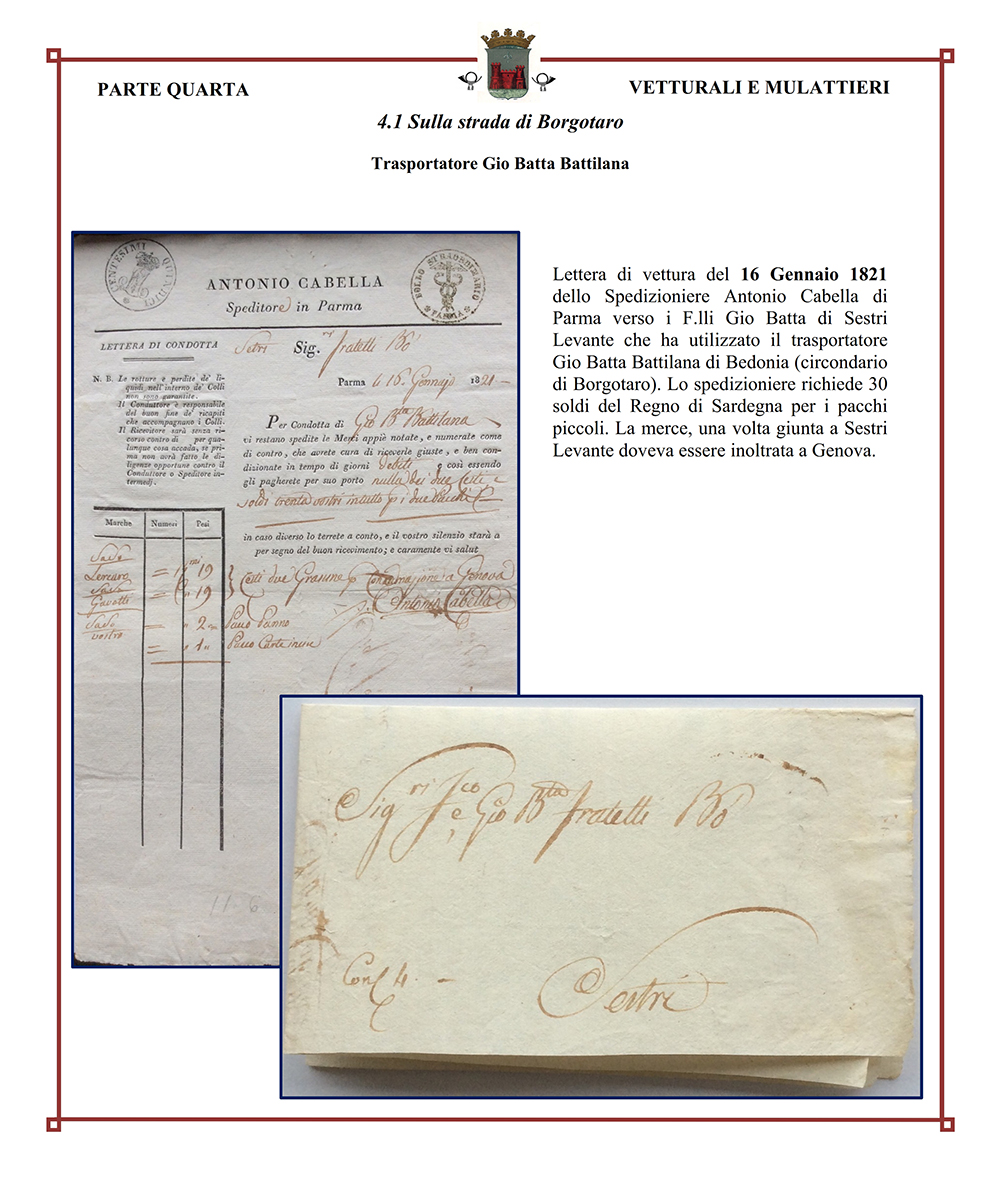 PARTE QUARTA
VETTURALI E MULATTIERI
4.1 Sulla strada di Borgotaro
Trasportatore Gio Batta Battilana
CENTESIMI QUINDICI
BOLLO STRAORDINARIO
PARMA
ANTONIO CABELLA
Speditore in Parma
LETTERA DI CONDOTTA
Setri Sig.ri fratelli Bò
N. B. Le rotture e perdite de' li-
quidi nell'interno de' Colli
non sono garantite.
Il Conduttore è responsabile
del buon fine de' ricapiti
che accompagnano i Colli.
Il Ricevitore sarà senza ri-
corso contro di per qua-
lunque cosa accada, se pri-
ma non avrà fatto le di-
ligenze opportune contro il
Conduttore o Speditore in-
termedj.
Parma li 16 Gennajo 1821
Per Condotta di Gio Bta Battilana
vi restano spedite le Merci appiè notate, e numerate come
di contro, che avrete cura di riceverle giuste, e ben con-
dizionate in tempo di giorni debiti e così essendo
gli pagherete per suo porto nulla dei due Cesti e
soldi trenta vostri in tutto p i due Pacchi
in caso diverso lo terrete a conto, e il vostro silenzio starà a
per segno del buon ricevimento; e caramente vi salut
Marche Numeri Pesi
19
19
Cesti due p a Genova
Antonio Cabella
vostro
2 Pacco Panno
1 Pacco Carte
11.6
Lettera di vettura del 16 Gennaio 1821
dello Spedizioniere Antonio Cabella di
Parma verso i F.lli Gio Batta di Sestri
Levante che ha utilizzato il trasportatore
Gio Batta Battilana di Bedonia (circondario
di Borgotaro). Lo spedizioniere richiede 30
soldi del Regno di Sardegna per i pacchi
piccoli. La merce, una volta giunta a Sestri
Levante doveva essere inoltrata a Genova.
Sigri Fco e Gio Btta fratelli Bò
Con 4.
Sestri